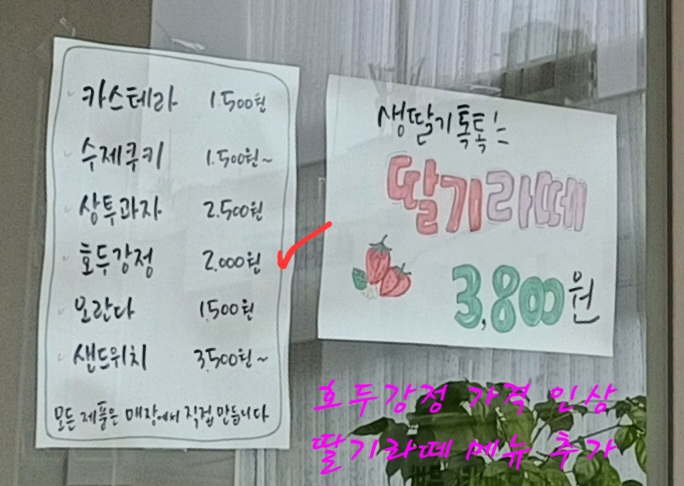 카스테라 1.500원
수제쿠키 1.500원~
상투과자 2.500원
호두강정 2.000원
오란다 1.500원
샌드위치 3.500원~
모든 제품은 매장에서 직접 만듭니다
생딸기톡톡!
딸기라떼
3,800원
호두강정 가격 인상
딸기라떼 메뉴 추가